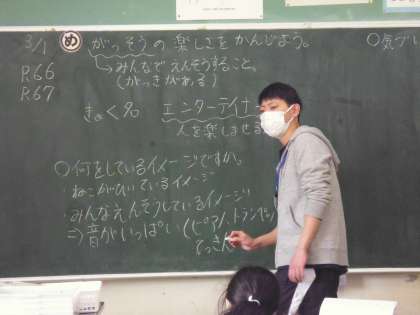 3/1 め がっそうの楽しさをかんじよう。
P.66
P.67
みんなでえんそうすること。
(がっきがある)
きょく名 エンターテイナー
人を楽しませる
○何をしているイメージですか。
・ねこがひいているイメージ
・みんなえんそうしているイメージ
⇒音がいっぱい(ピアノ、トランペッ
てっきん
○気づ